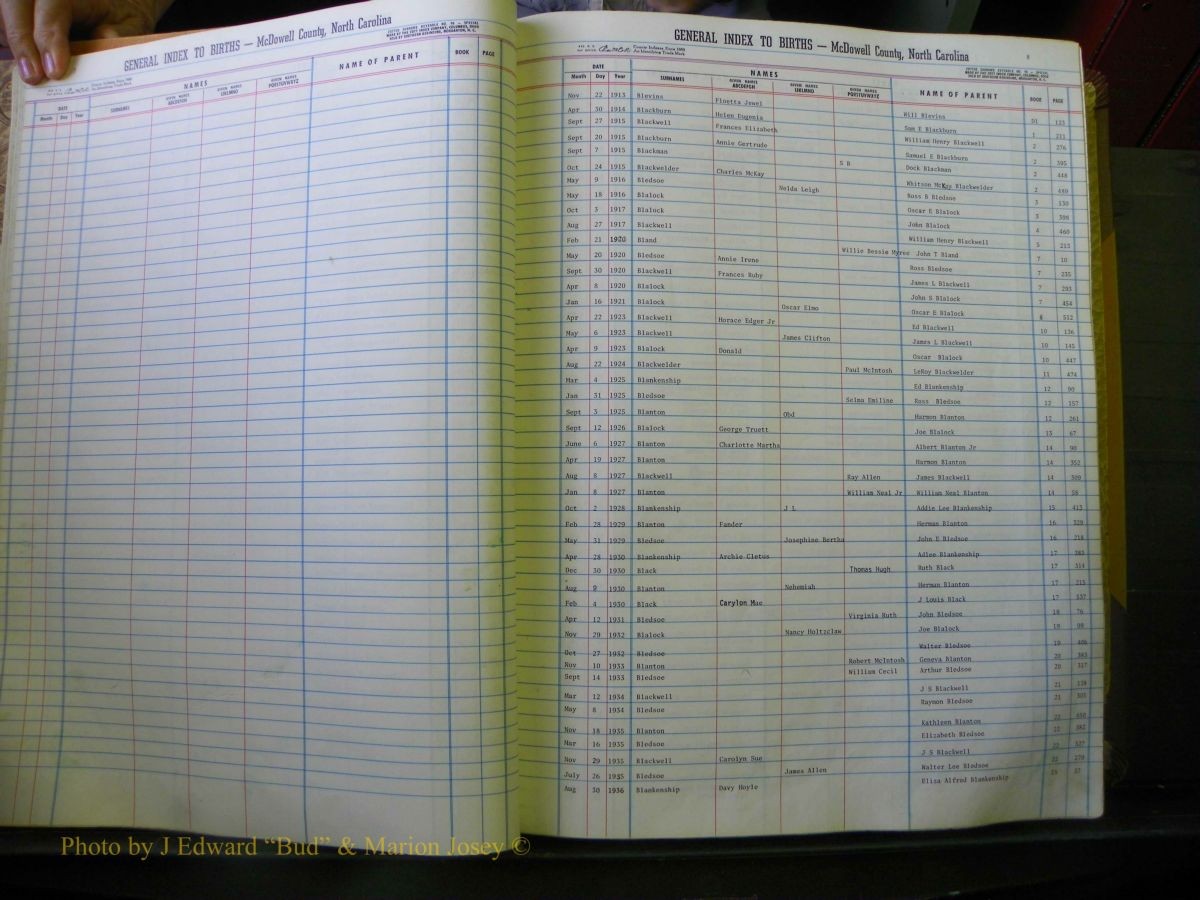 GENERAL INDEX TO BIRTHS — McDowell County, North Carolina
NAMES NAME OF PARENT BOOK PAGE
DATE SURNAMES GIVEN NAMES ABCDEFGH GIVEN NAMES IJKLMNO GIVEN NAMES PQRSTUVWXYZ
Month Day Year
GENERAL INDEX TO BIRTHS — McDowell County, North Carolina
DATE NAMES NAME OF PARENT BOOK PAGE
Month Day Year SURNAMES GIVEN NAMES ABCDEFGH GIVEN NAMES IJKLMNO GIVEN NAMES PQRSTUVWXYZ
Nov 22 1913 Blevins Finetta Jewel Will Blevins D1 123
Apr 30 1914 Blackburn Helen Eugenia Sam E Blackburn 1 211
Sept 27 1915 Blackwell Frances Elizabeth William Henry Blackwell 2 276
Sept 20 1915 Blackburn Annie Gertrude Samuel E Blackburn 2 395
Sept 7 1915 Blackman S B Dock Blackman 2 448
Oct 24 1915 Blackwelder Charles McKay Whitson McKay Blackwelder 2 480
May 9 1916 Bledsoe Nelda Leigh Ross B Bledsoe 3 130
May 18 1916 Blalock Oscar E Blalock 3 398
Oct 3 1917 Blalock John Blalock 4 460
Aug 27 1917 Blackwell William Henry Blackwell 5 215
Feb 21 1920 Bland Willie Bessie Myree John T Bland 7 10
May 20 1920 Bledsoe Annie Irene Ross Bledsoe 7 235
Sept 30 1920 Blackwell Frances Ruby James L Blackwell 7 293
Apr 8 1920 Blalock John S Blalock 7 454
Jan 16 1921 Blalock Oscar Elmo Oscar E Blalock 8 512
Apr 22 1923 Blackwell Horace Edger Jr Ed Blackwell 10 136
May 6 1923 Blackwell James Clifton James L Blackwell 10 145
Apr 9 1923 Blalock Donald Oscar Blalock 10 447
Aug 22 1924 Blackwelder Paul McIntosh LeRoy Blackwelder 11 474
Mar 4 1925 Blankenship Ed Blankenship 12 90
Jan 31 1925 Bledsoe Selma Emiline Ross Bledsoe 12 157
Sept 3 1925 Blanton Obd Harmon Blanton 12 261
Sept 12 1926 Blalock George Truett Joe Blalock 13 67
June 6 1927 Blanton Charlotte Martha Albert Blanton Jr 14 90
Apr 19 1927 Blanton Harmon Blanton 14 352
Aug 8 1927 Blackwell Ray Allen James Blackwell 14 309
Jan 8 1927 Blanton William Neal Jr William Neal Blanton 14 58
Oct 2 1928 Blankenship J L Addie Lee Blankenship 15 413
Feb 28 1929 Blanton Fander Herman Blanton 16 329
May 31 1929 Bledsoe Josephine Bertha John E Bledsoe 16 218
Apr 28 1930 Blankenship Archie Cletus Adlee Blankenship 17 283
Dec 30 1930 Black Thomas Hugh Ruth Black 17 314
Aug 9 1930 Blanton Nehemiah Herman Blanton 17 215
Feb 4 1930 Black Carylon Mae J Louis Black 17 537
Apr 12 1931 Bledsoe Virginia Ruth John Bledsoe 18 76
Nov 29 1932 Blalock Nancy Holtzclaw Joe Blalock 19 98
Oct 27 1932 Bledsoe Walter Bledsoe 19 406
Nov 10 1933 Blanton Robert McIntosh Geneva Blanton 20 383
Sept 14 1933 Bledsoe William Cecil Arthur Bledsoe 20 317
Mar 12 1934 Blackwell J S Blackwell 21
May 8 1934 Bledsoe Raymon Bledsoe 21
Nov 18 1935 Blanton Kathleen Blanton 22
Mar 16 1935 Bledsoe Elizabeth Bledsoe 22
Nov 29 1935 Blackwell Carolyn Sue J S Blackwell 22
July 26 1935 Bledsoe James Allen Walter Lee Bledsoe 22 279
Aug 30 1936 Blankenship Davy Hoyle Eliza Alfred Blankenship
Photo by J Edward “Bud” & Marion Josey ©